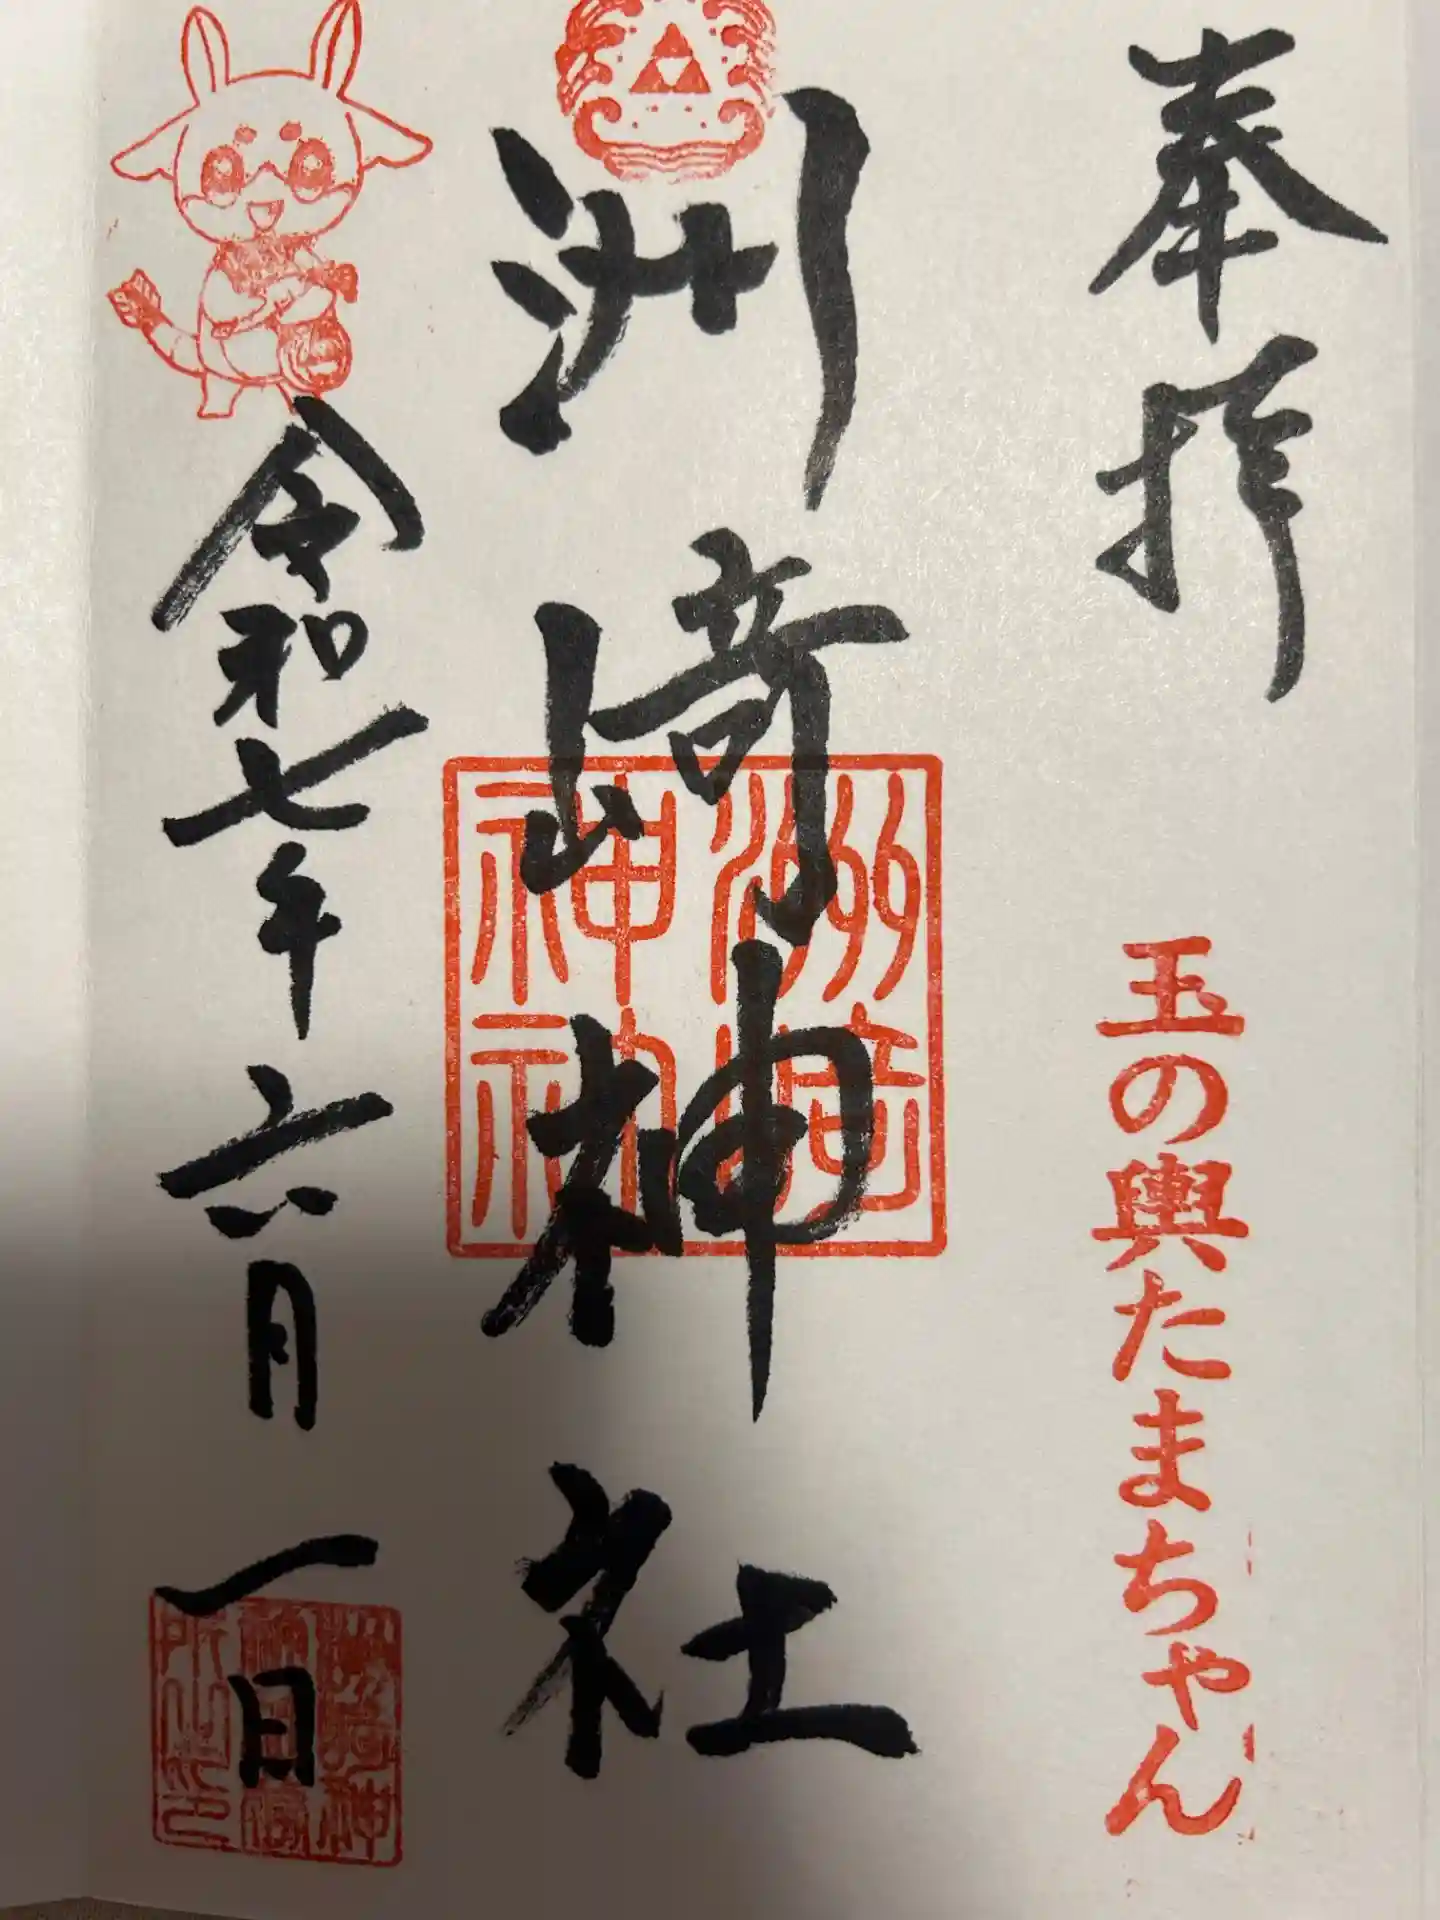 奉拝
玉の輿たまちゃん
洲崎神社
洲崎
神社
令和七年六月一日